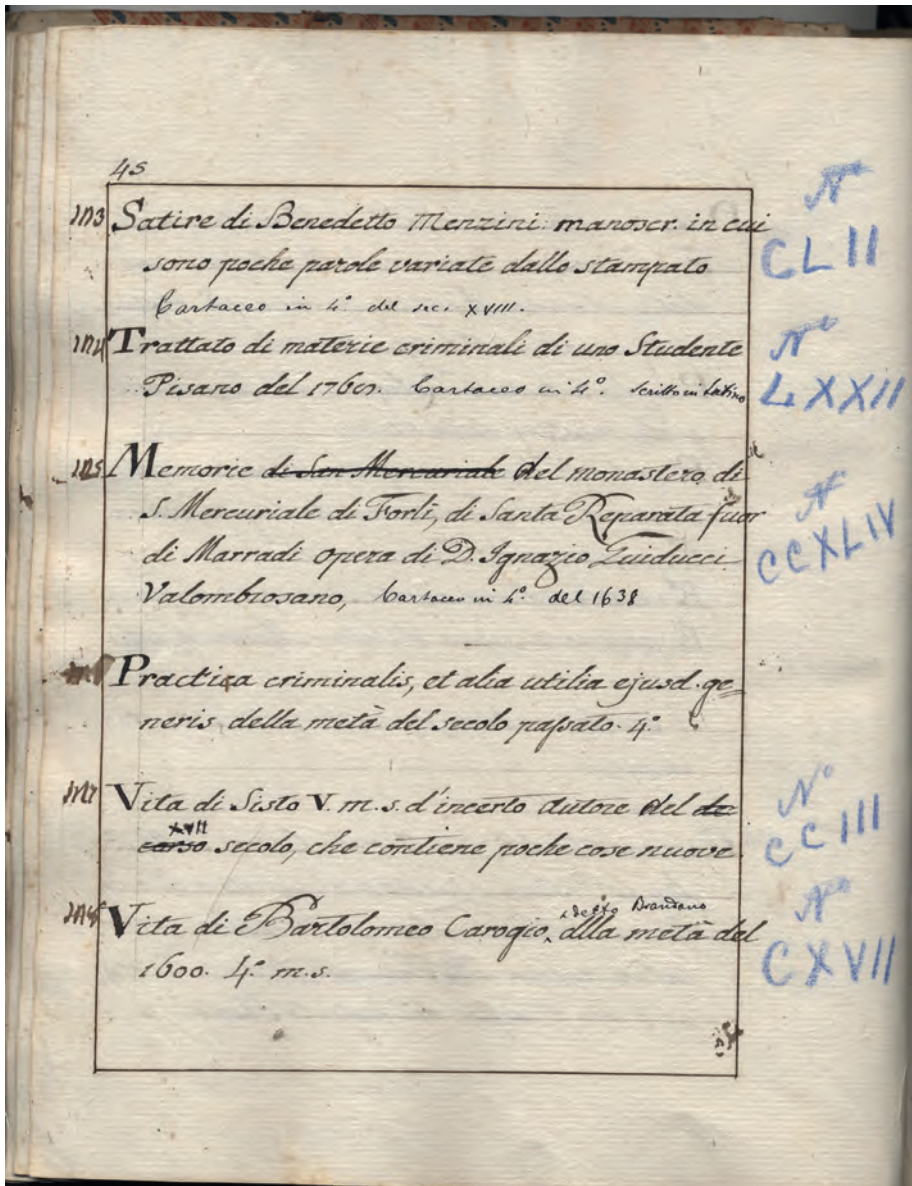 45
Satire di Benedetto Menzini: manoscr. in cui N°
sono poche parole variate dallo stampato CLII
Cartaceo in 4.° del sec. XVIII.
Trattato di materie criminali di uno Studente N°
Pisano del 1760. Cartaceo in 4°. scritto in Latino LXXII
Memorie di San Mercuriale del monastero di
S. Mercuriale di Forlì, di Santa Reparata fuor N°
di Marradi opera di D. Ignazio Guiducci CCXLIV
Valombrosano, Cartaceo in 4.° del 1638
Practica criminalis, et alia utilia ejusd. ge=
neris della metà del secolo passato. 4.°
Vita di Sisto V. m.s. d'incerto autore del de N°
XVII
corso secolo, che contiene poche cose nuove. CCIII
detto Brandano N°
Vita di Bartolomeo Carogio, dlla metà del
1600. 4.° m.s. CXVII